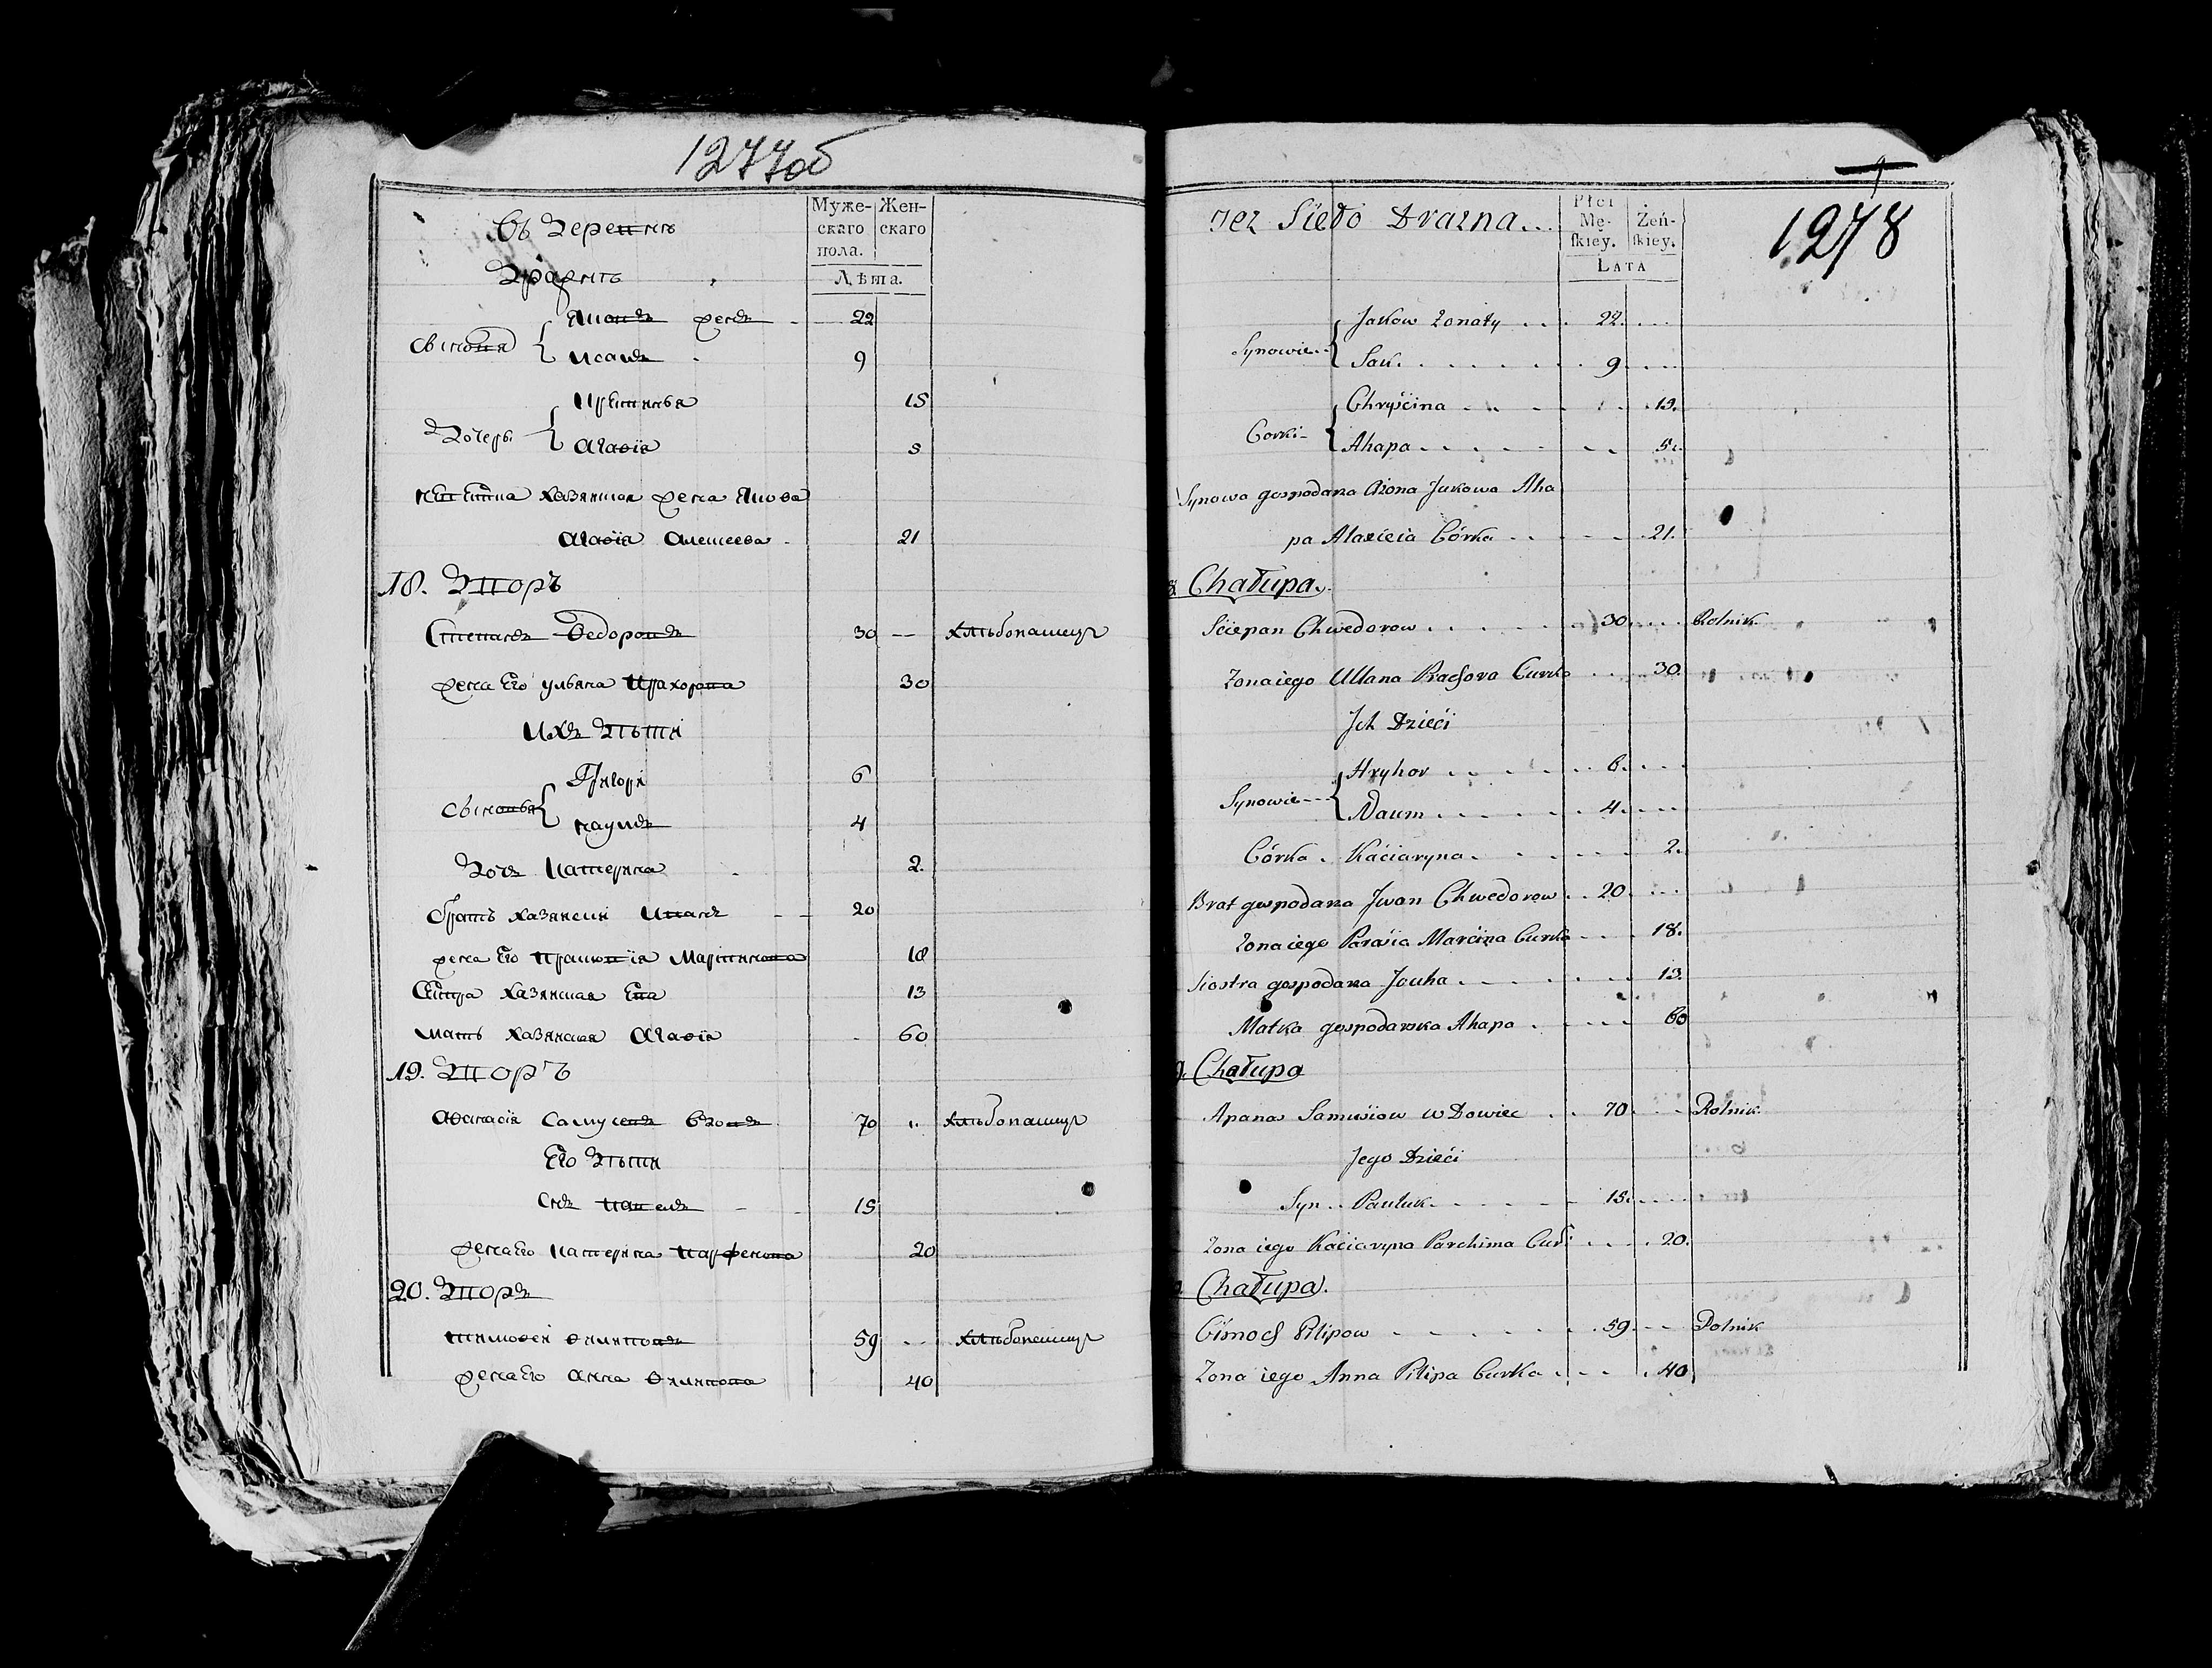 1277об
Въ Деревнѣ
Дражнѣ
Муже-
скаго
пола.
Жен-
скаго
Лѣта.
Яковъ женъ 22
Сыновья { Исакъ 9
Христинья 15
Дочери { Агафія 5
невестка хазяиская жена Якова
Агафія Алексеева 21
18. Дворъ
Степанъ Федоровъ 30 — хлѣбопашецъ
жена Его ульяна Прахорова 30
Ихъ дѣти
Григори 6
Сыновья { наумъ 4
Дочь Катерина 2.
братъ хазяиски Иванъ 20
жена Его Прасковія Мартинова 18
Сестра хазяиская Ева 13
мать хазяиская Агафія 60
19. Дворъ
Афанасіи Самусевъ вдовъ 70 " хлѣбопашецъ
Его дѣти
Снъ павелъ 15
женаЕго Катерина парфенова 20
20. Дворъ
тимофеи филиповъ 59 -- хлѣбопашецъ
женаЕго Анна филипова 40
1278
Sieło Drazna...
Płci
Mę-
skiey.
Żeń-
skiey.
LATA
Jakow zonaty . . . 22. . . .
Synowie { Sak . . . . . 9. . . .
Chryścina . . . . 15.
Corki { Ahapa . . . . 5.
Synowa gospodarza a żona Jakowa Aha
pa Alaxieia Córka . . . 21.
Chałupa.
Sciepan Chwedorow . . . . 30 . . . Rolnik
Zona iego Ullana Curka . . . 30.
Jch Dzieći
Hryhor . . . . 6. . . .
Synowie { Naum . . . . 4. . . .
Córka . Kaciaryna . . . . 2.
Brat gospodarza Jwan Chwedorow . . 20. . . .
Zona iego Parasia Marcina Curka . . . 18.
Siostra gospodarza Jouha . . . . 13.
Matka gospodarska Ahapa . . . . 60
Chałupa
Apanas Samusiow wDowiec . . 70. . . . Rolnik.
Jego Dzieći
Syn . . Pauluk . . . . 15. . . .
Zona iego Kaciaryna Parchima Cur: . . . 20.
Chałupa.
Cimoch Pilipow . . . . 59. . . Rolnik
Zona iego Anna Pilipa Curka . . . . 40